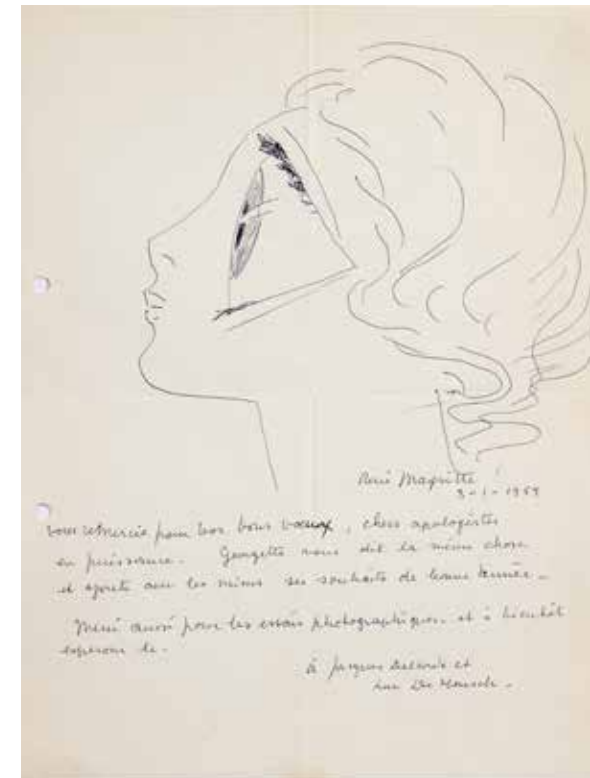 René Magritte
3-1-1959
vous remercie pour vos bons vœux, chers apologistes
en puissance. Georgette vous dit la même chose
et ajoute avec les miens ses souhaits de bonne année.
Merci aussi pour les essais photographiques et à bientôt
espérons le.
à Jacques et